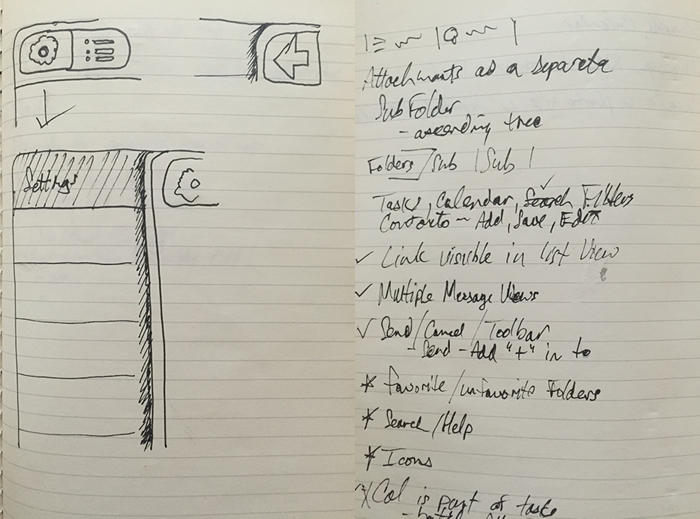 Settings
Attachments as a separate
SubFolder
- ascending tree
Folders/Sub |Sub|
Tasks, Calendar, Search Filters
Contacts - Add, Save, Edit
✓ Link visible in list View
✓ Multiple Message Views
✓ Send/Cancel/Toolbar
- Send - Add "+" in to
* Favorite/unfavorite Folders
* Search/Help
* Icons
Cal is part of tasks